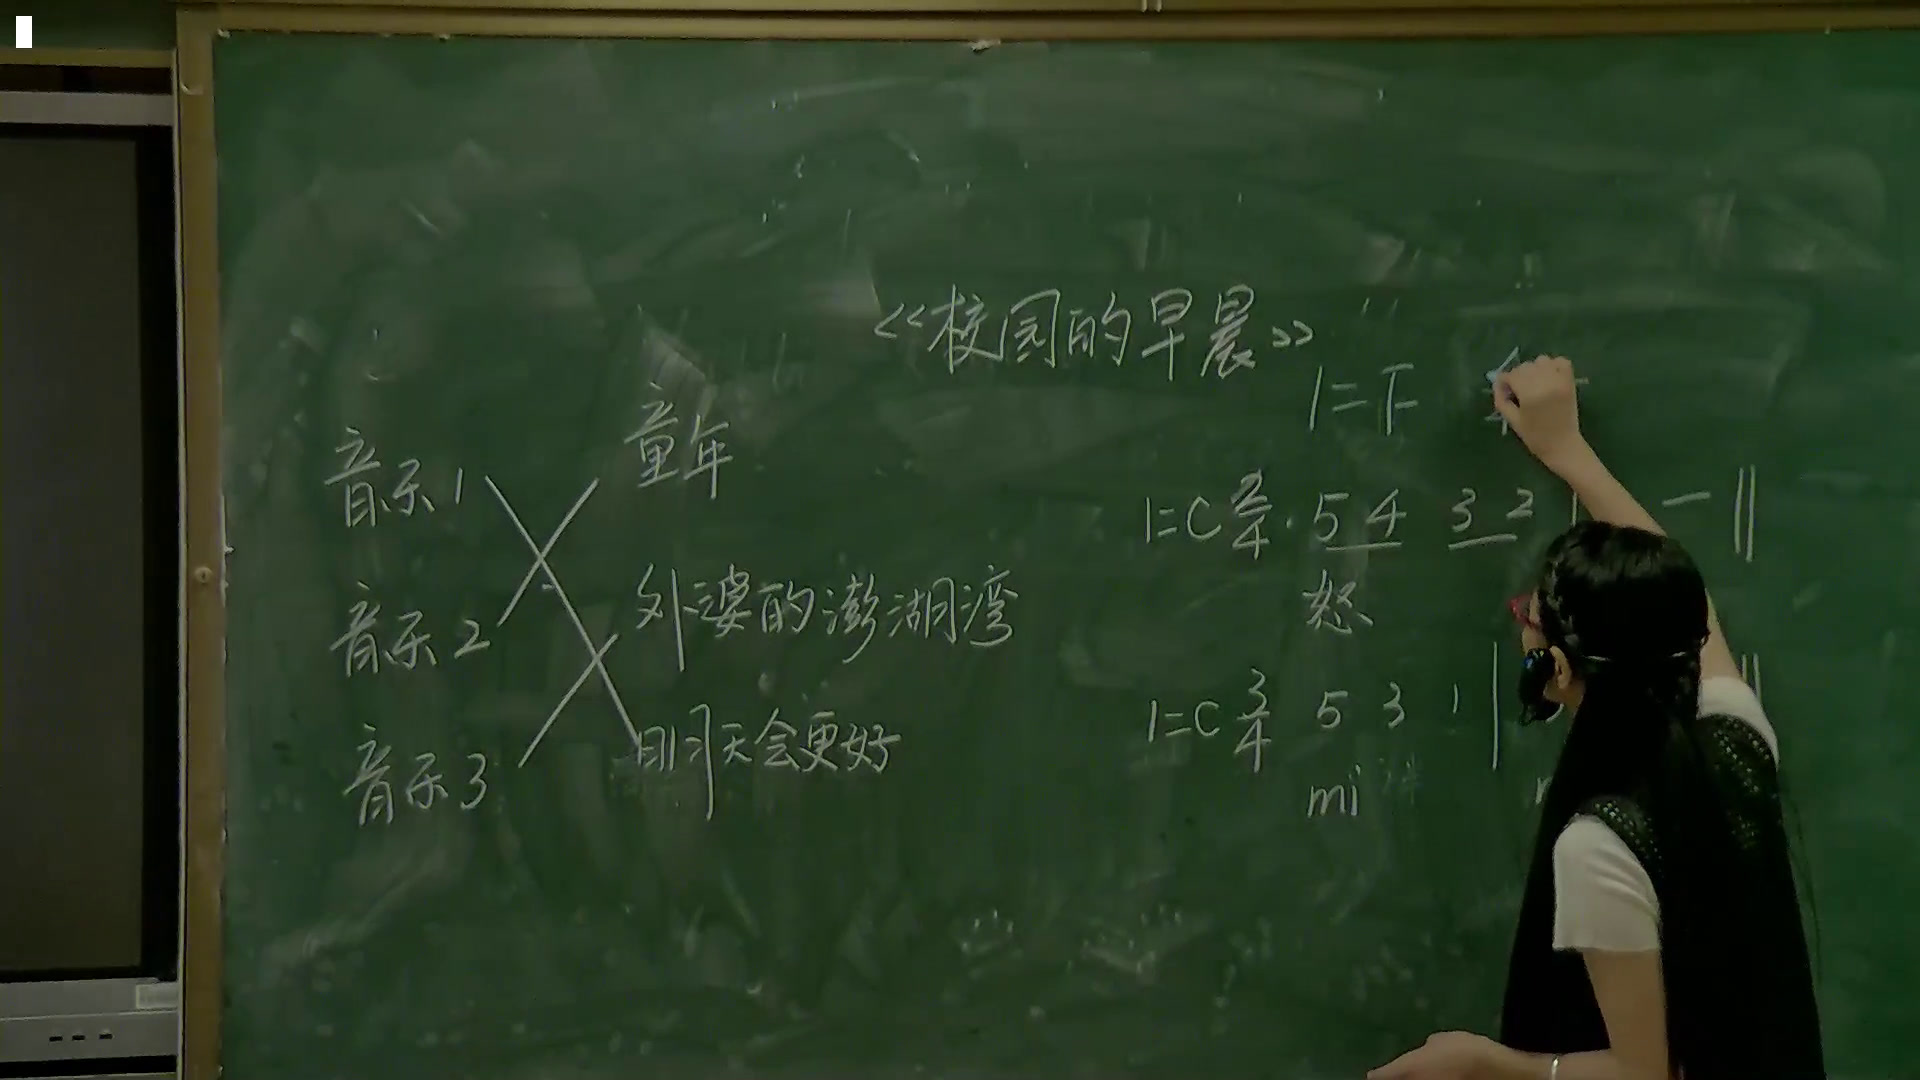 《校园的早晨》
1=F
音乐1 童年
音乐2 外婆的澎湖湾
音乐3 明天会更好
1=C 2/4 5 4 3 2 | — ‖
怒
1=C 3/4 5 3 1 |
mi